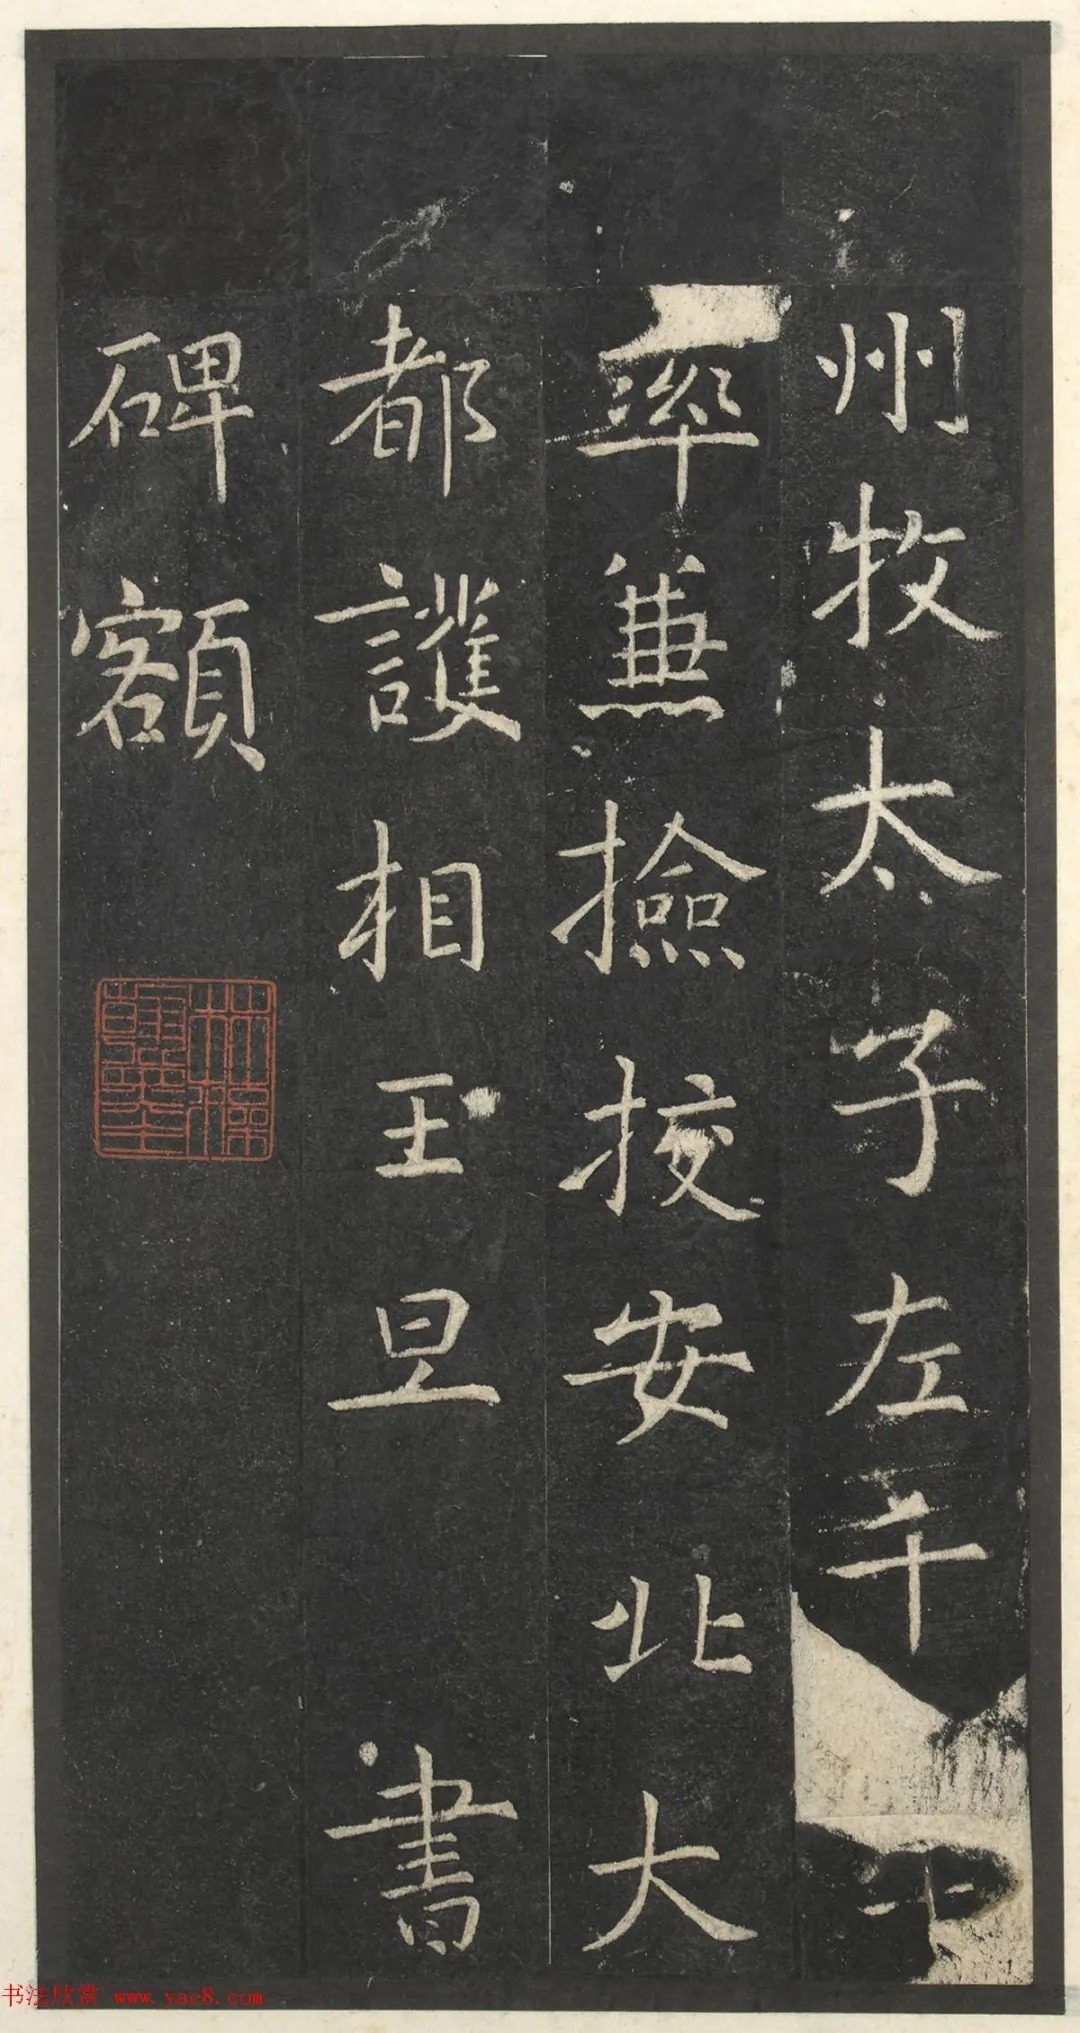 州牧太子左千牛
率兼撿挍安北大
都護相王旦 書
碑額
書法欣赏 www.yac8.com